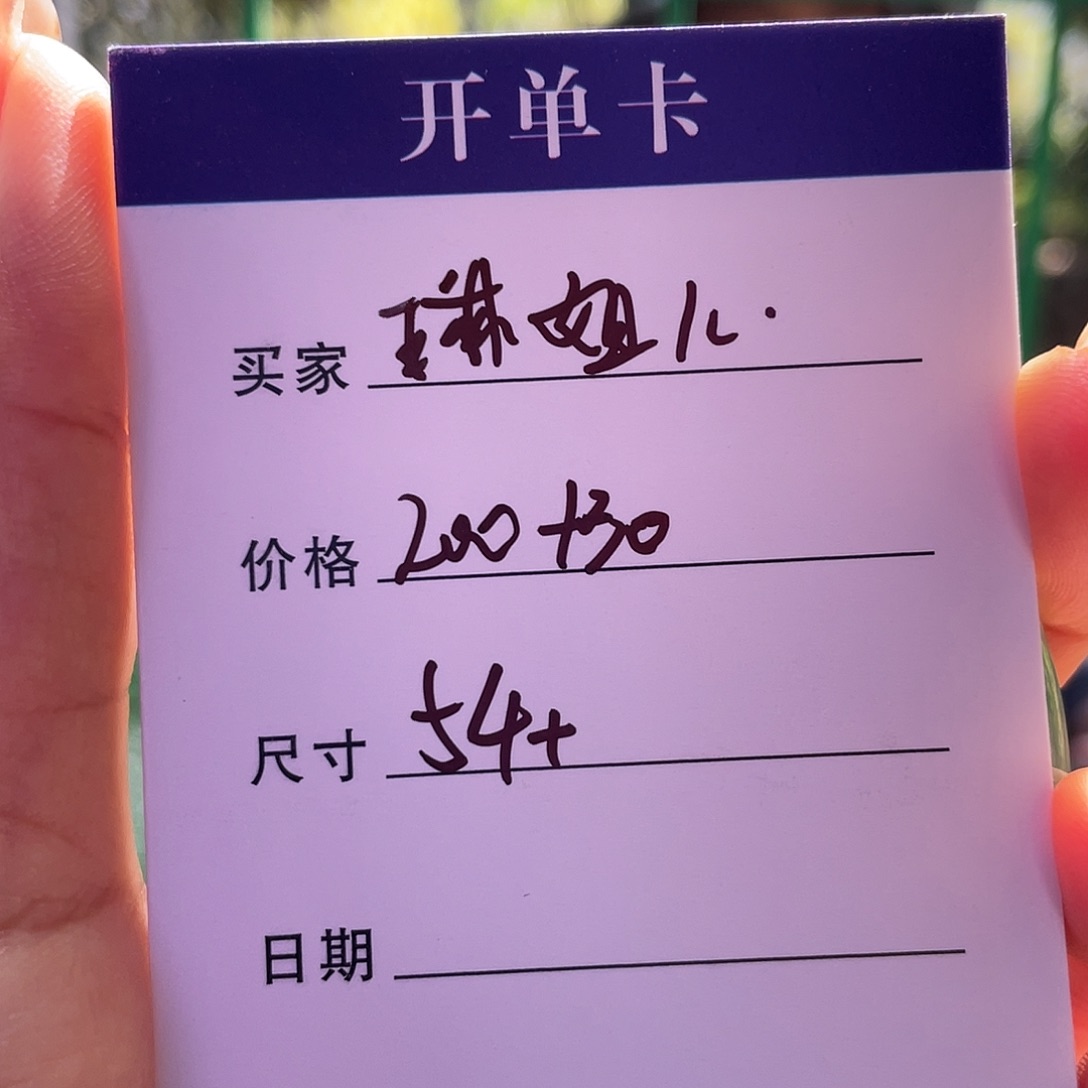 开单卡
买家 琳姐儿.
价格 200+30
尺寸 54+
日期